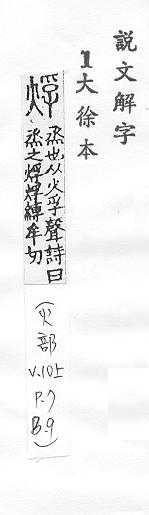 説文解字
1大徐本
烰
烝也从火孚聲詩曰
烝之烰烰縛牟切
(火部 V.10上 P.7 B.9)